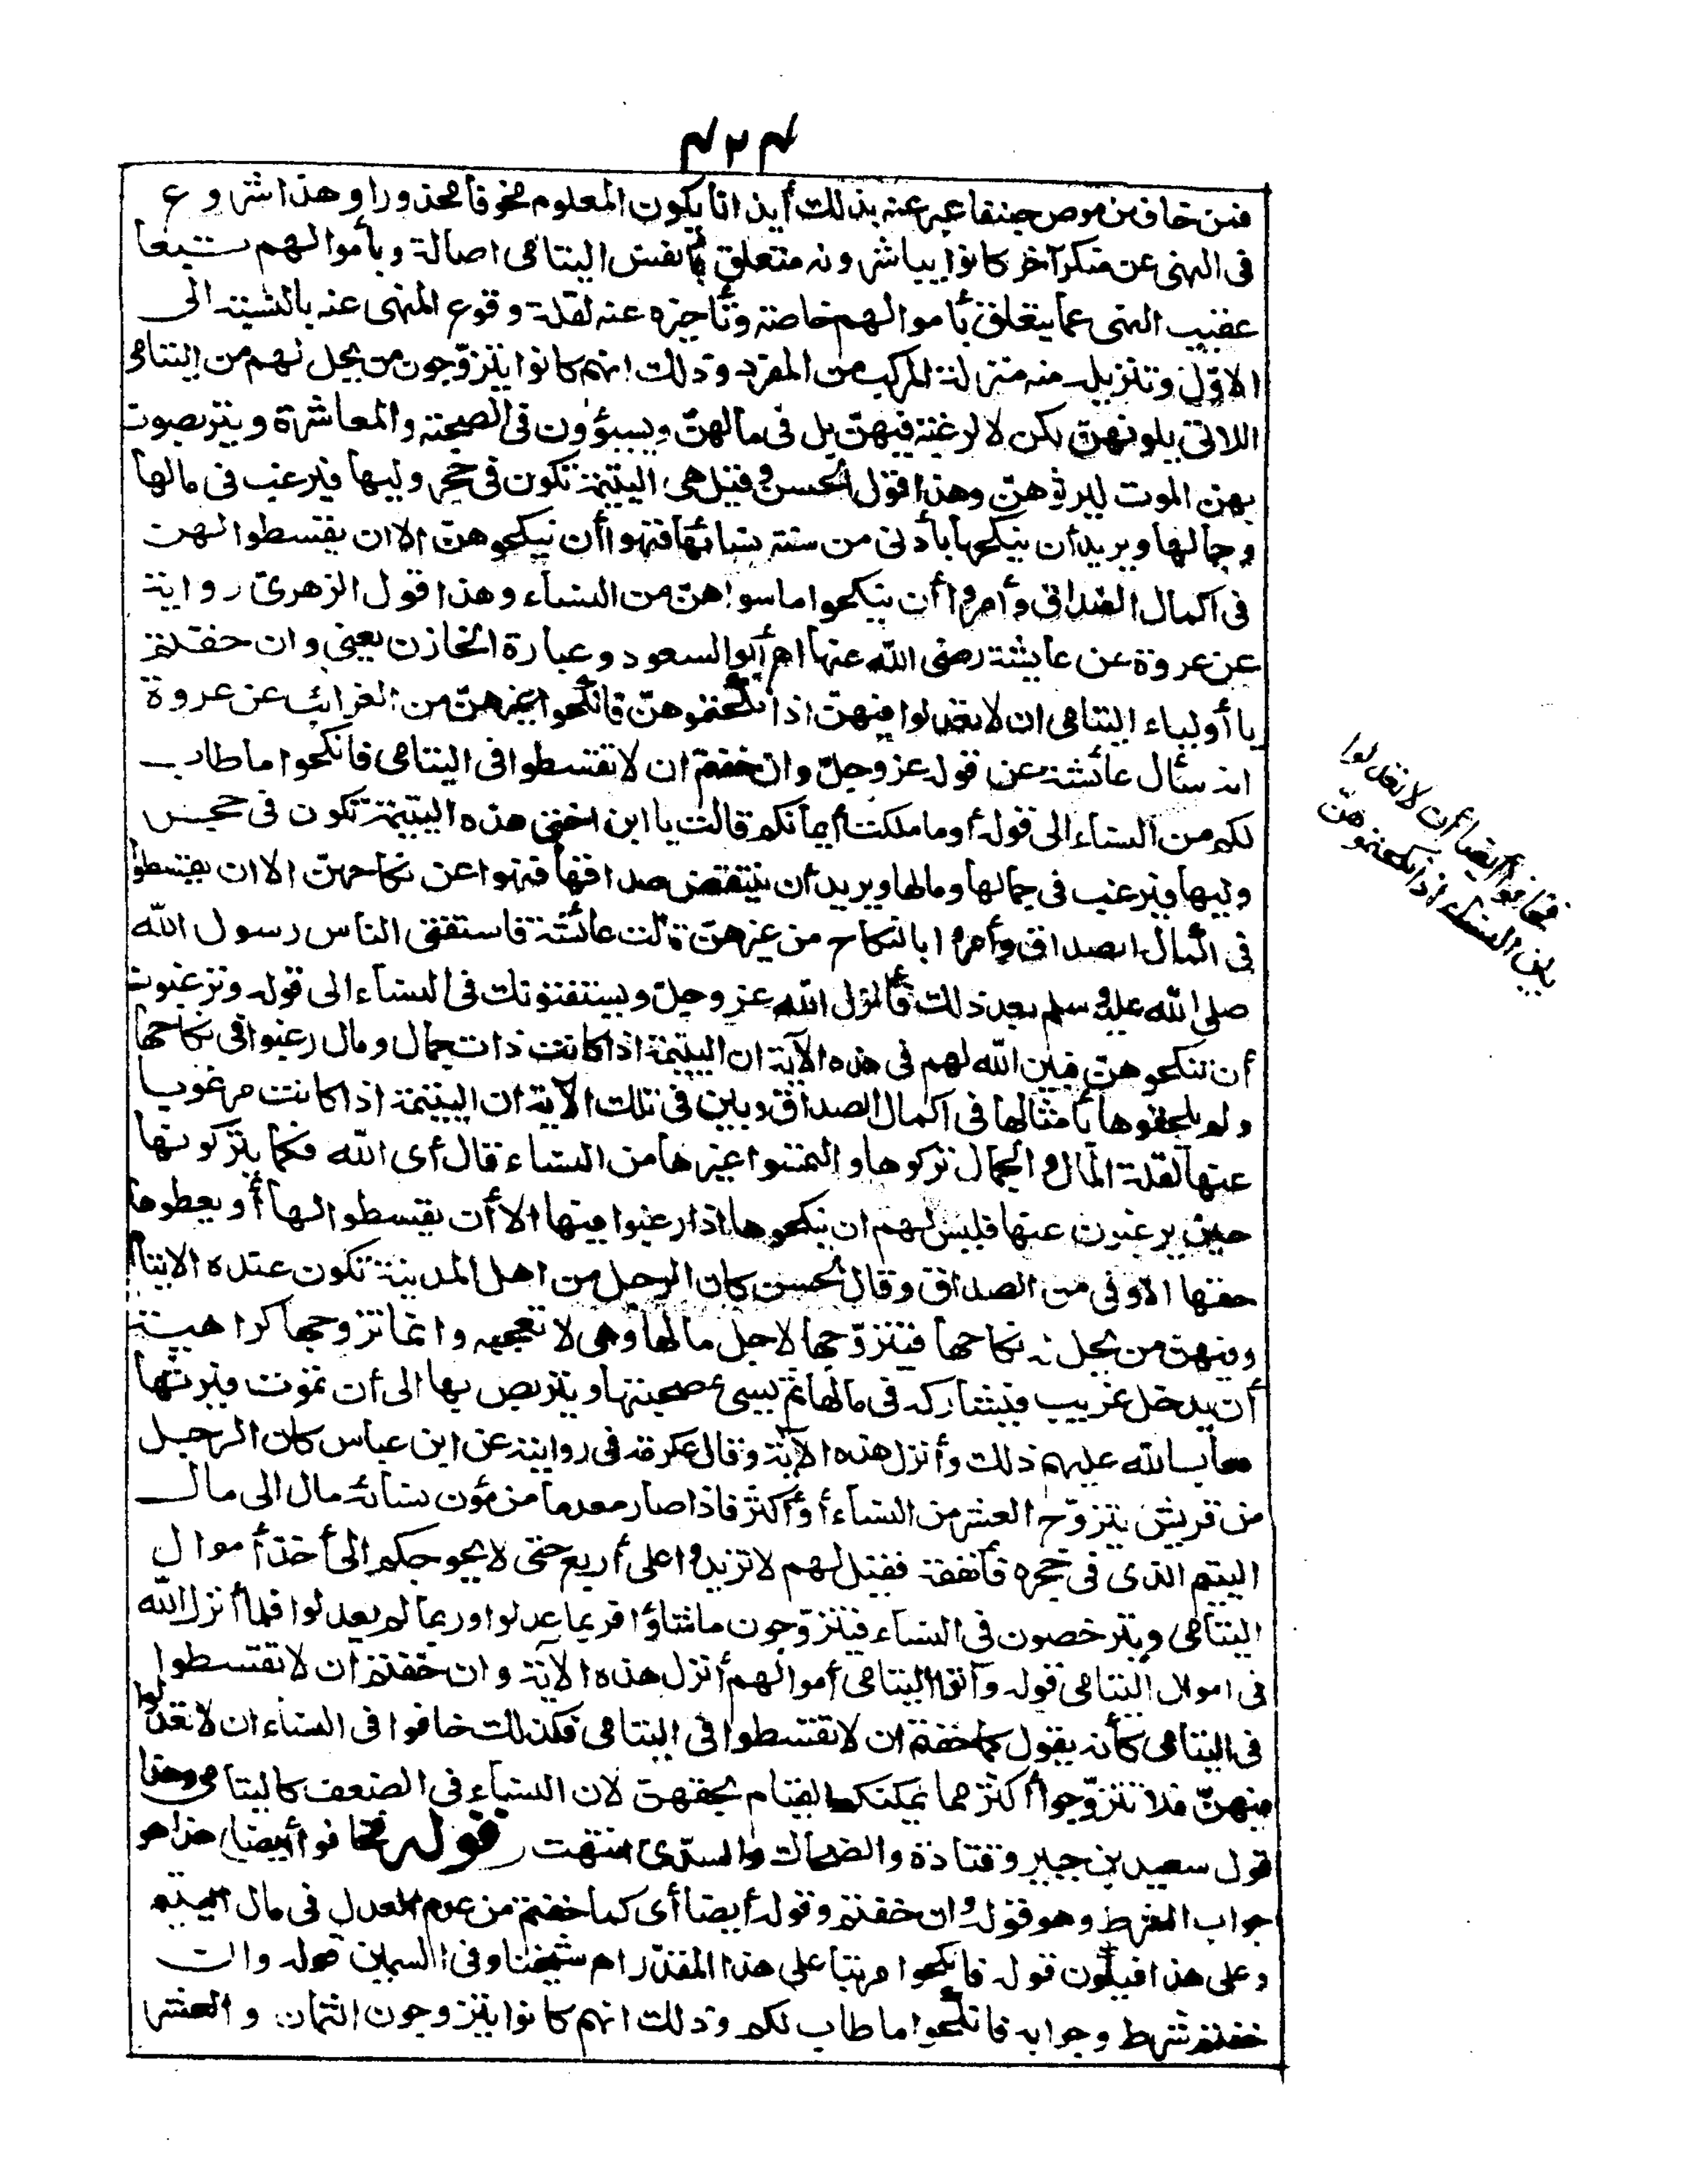 ٤٢٤
فمن خاف من موص جنفا عبر عنه بذلك أيذانا بكون المعلوم مخوفا محذورا وهذا شروع
فى النهى عن منكر آخر كانوا يباشرونه متعلق بأنفس اليتامى اصالة وبأموالهم تبعا
عقيب النهى عما يتعلق بأموالهم خاصة وتأخيره عنه لقلة وقوع المنهى عنه بالنسبة الى
الاول وتنزيله منه منزلة المركب من المفرد وذلك انهم كانوا يتزوّجون من يحل لهم من اليتامى
اللاتى يلونهن لكن لا لرغبة فيهنّ بل فى مالهنّ ويسيؤون فى الصحبة والمعاشرة ويتربصون
بهن الموت ليرثوهنّ وهذا قول الحسن وقيل هى اليتيمة تكون فى حجر وليها فيرغب فى مالها
وجمالها ويريد أن ينكحها بأدنى من سنة نسائها فنهوا أن ينكحوهنّ الا ان يقسطوا لهن
فى اكمال الصداق وأمروا أن ينكحوا ما سواهنّ من النساء وهذا قول الزهرىّ رواية
عن عروة عن عايشة رضى الله عنها اه أبو السعود وعبارة الخازن يعنى وان خفتم
يا أولياء اليتامى ان لا تعدلوا فيهنّ اذا نكحتموهنّ فانكحوا غيرهنّ من الغرائب عن عروة
انه سأل عائشة عن قوله عز وجلّ وان خفتم ان لا تقسطوا فى اليتامى فانكحوا ما طاب
لكم من النساء الى قوله أو ما ملكت أيمانكم قالت يا ابن اختى هذه اليتيمة تكون فى حجر
وليها فيرغب فى جمالها ومالها ويريد أن ينتقص صداقها فنهوا عن نكاحهنّ الا ان يقسطوا
فى اكمال الصداق وأمروا بالنكاح من غيرهنّ قالت عائشة فاستفتى الناس رسول الله
صلى الله عليه وسلم بعد ذلك فأنزل الله عز وجلّ ويستفتونك فى النساء الى قوله وترغبون
أن تنكحوهن فبين الله لهم فى هذه الآية ان اليتيمة اذا كانت ذات جمال ومال رغبوا فى نكاحها
ولم يلحقوها بأمثالها فى اكمال الصداق وبين فى تلك الآية ان اليتيمة اذا كانت مرغوبا
عنها لقلة المال والجمال تركوها والتمسوا غيرها من النساء قال أى الله فكما يتركونها
حين يرغبون عنها فليس لهم ان ينكحوها اذا رغبوا فيها الا أن يقسطوا لها أو يعطوها
حقها الاوفى من الصداق وقال الحسن كان الرجل من اهل المدينة تكون عنده الايتام
وفيهن من يحل له نكاحها فيتزوّجها لاجل مالها وهى لا تعجبه وانما تزوجها كراهية
أن يدخل غريب فيشاركه فى مالها ثم يسىء صحبتها ويتربص بها الى أن تموت فيرثها
فعاب الله عليهم ذلك وأنزل هذه الآية وقال عكرمة فى رواية عن ابن عباس كان الرجل
من قريش يتزوّج العشر من النساء أو أكثر فاذا صار معدما من مؤن نسائه مال الى مال
اليتيم الذى فى حجره فأنفقه فقيل لهم لا تزيدوا على أربع حتى لا يحوجكم الى أخذ أموال
اليتامى ويترخصون فى النساء فيتزوّجون ما شاؤا فربما عدلوا وربما لم يعدلوا فلما أنزل الله
فى اموال اليتامى قوله وآتوا اليتامى أموالهم أنزل هذه الآية وان خفتم ان لا تقسطوا
فى اليتامى كأنه يقول كما خفتم ان لا تقسطوا فى اليتامى فكذلك خافوا فى النساء ان لا تعدلوا
فيهنّ فلا تتزوّجوا أكثر مما يمكنكم القيام بحقهن لان النساء فى الضعف كاليتامى وهذا
قول سعيد بن جبير وقتادة والضحاك والسدّى انتهت قوله فخافوا أيضا هذا هو
جواب الشرط وهو قوله وان خفتم وقوله أيضا أى كما خفتم من عدم العدل فى مال اليتيم
وعلى هذا فيكون قوله فانكحوا مرتبا على هذا المقدّر اه شيخنا وفى السمين قوله وان
خفتم شرط وجوابه فانكحوا ما طاب لكم وذلك انهم كانوا يتزوجون الثمان والعشر
فخافوا أيضا أن لا تعدلوا
بين النساء اذا نكحتموهن